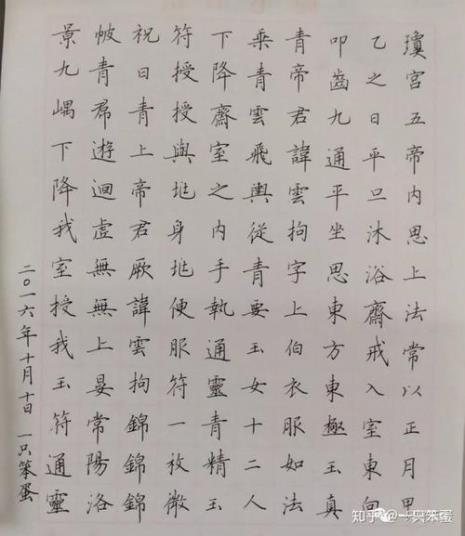 瓊宮五帝內思上法常以正月甲
乙之日平旦沐浴齋戒入室東向
叩齒九通平坐思東方東極玉真
青帝君諱雲拘字上伯衣服如法
乘青雲飛輿從青要玉女十二人
下降齋室之內手執通靈青精玉
符授授與地身地便服符一枚微
祝曰青上帝君厥諱雲拘錦錦錦
帔青帬遊迴虛無無上晏常陽洛
景九嵎下降我室授我玉符通靈
二〇一六年十月十日 一只笨蛋
知乎 @一只笨蛋